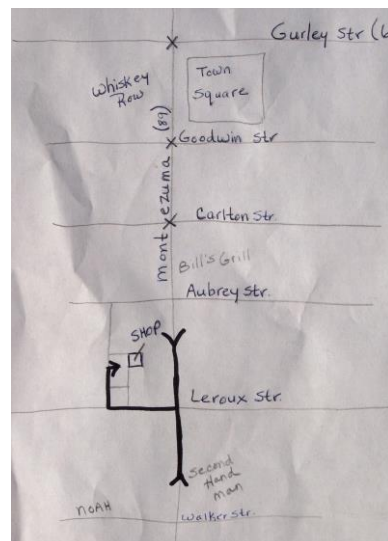 Gurley Str (6
Whiskey
Row
Town
Square
Goodwin Str
montezuma (89)
Carlton Str.
Bill's Grill
Aubrey Str.
SHOP
Leroux Str.
Second
Hand
man
NOAH
Walker Str.